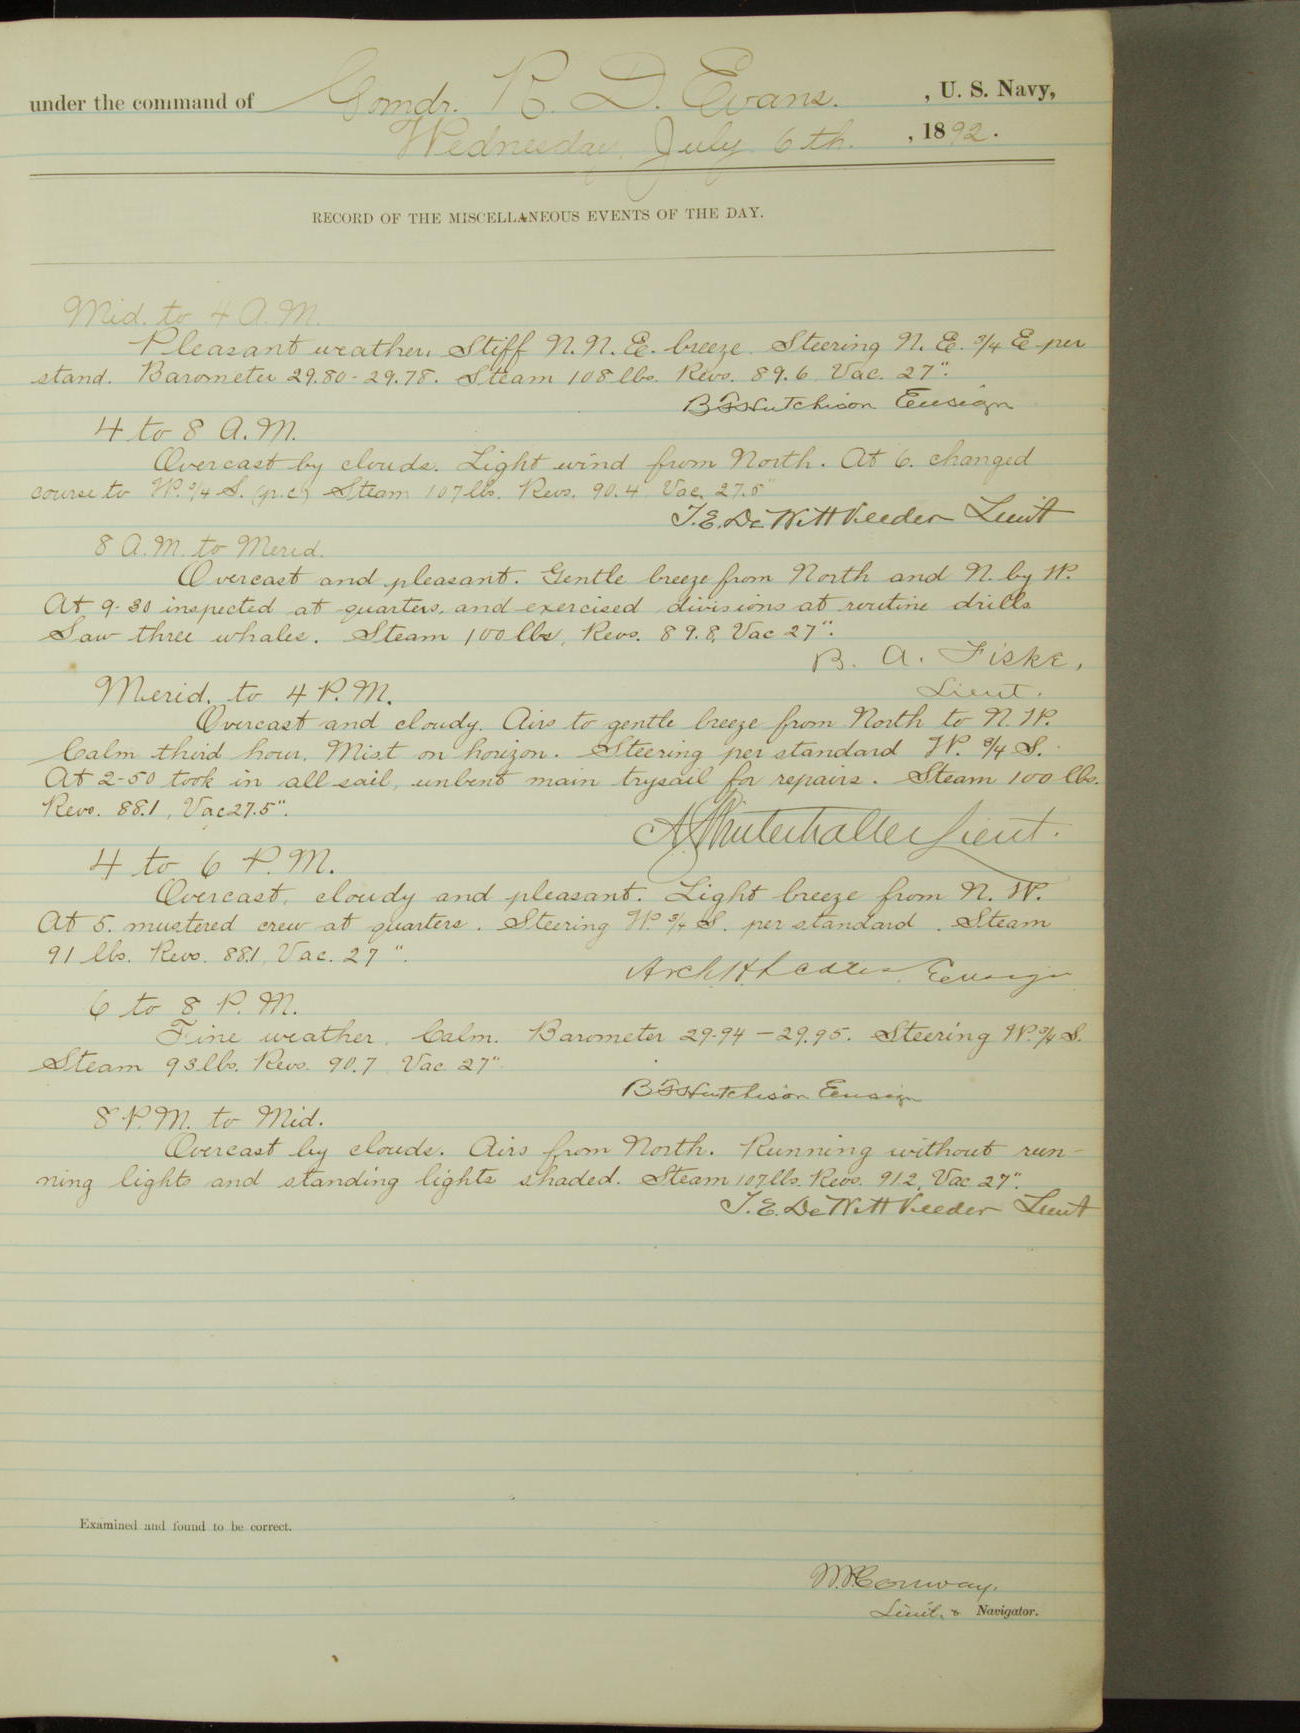 under the command of Comdr. R. D. Evans. , U. S. Navy,
Wednesday, July 6th. , 1892.
RECORD OF THE MISCELLANEOUS EVENTS OF THE DAY.
Mid. to 4 A.M.
Pleasant weather. Stiff N.N.E. breeze. Steering N.E. 3/4 E per
stand. Barometer 29.80-29.78. Steam 108 lbs. Revs. 89.6 Vac. 27".
B F Hutchison Ensign
4 to 8 A.M.
Overcast by clouds. Light wind from North. At 6. changed
course to W. 3/4 S. (p.c.) Steam 107 lbs. Revs. 90.4 Vac. 27.5"
T.E. DeWitt Veeder Lieut
8 A.M. to Merid.
Overcast and pleasant. Gentle breeze from North and N. by W.
At 9-30 inspected at quarters, and exercised divisions at routine drills
Saw three whales. Steam 100 lbs, Revs. 89.8, Vac 27".
B. A. Fiske,
Lieut.
Merid. to 4 P.M.
Overcast and cloudy. Airs to gentle breeze from North to N.W.
Calm third hour. Mist on horizon. Steering per standard W. 3/4 S.
At 2-50 took in all sail, unbent main trysail for repairs. Steam 100 lbs.
Revs. 88.1, Vac 27.5".
Winterhalter Lieut.
4 to 6 P.M.
Overcast, cloudy and pleasant. Light breeze from N.W.
At 5. mustered crew at quarters. Steering W. 3/4 S. per standard. Steam
91 lbs. Revs. 88.1, Vac. 27".
Arch H. Ensign
6 to 8 P.M.
Fine weather. Calm. Barometer 29.94-29.95. Steering W. 3/4 S.
Steam 93 lbs. Revs. 90.7 Vac. 27"
B F Hutchison Ensign
8 P.M. to Mid.
Overcast by clouds. Airs from North. Running without run-
ning lights and standing lights shaded. Steam 107 lbs. Revs. 91.2, Vac. 27".
T.E. DeWitt Veeder Lieut
Examined and found to be correct.
W.P. Conway,
Lieut. & Navigator.